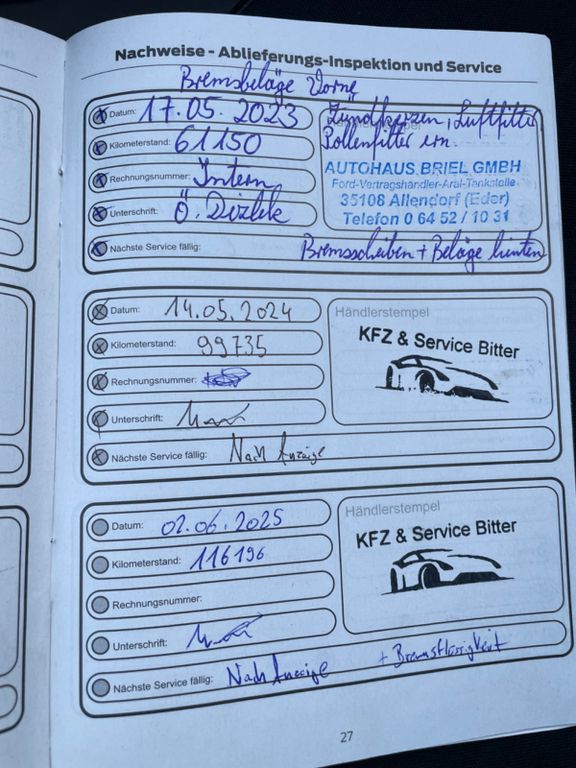 Nachweise - Ablieferungs-Inspektion und Service
Bremsbeläge Vorne
Datum: 17.05.2023
Zündkerzen, Luftfilter
Kilometerstand: 61150
Pollenfilter ern.
Rechnungsnummer: Intern
AUTOHAUS BRIEL GMBH
Ford-Vertragshändler-Aral-Tankstelle
35108 Allendorf (Eder)
Telefon 0 64 52 / 10 31
Unterschrift:
Nächste Service fällig:
Bremsscheiben + Beläge hinten
Datum: 14.05.2024
Händlerstempel
Kilometerstand: 99735
KFZ & Service Bitter
Rechnungsnummer:
Unterschrift:
Nächste Service fällig: Nach Anzeige
Datum: 02.06.2025
Händlerstempel
Kilometerstand: 116196
KFZ & Service Bitter
Rechnungsnummer:
Unterschrift:
Nächste Service fällig: Nach Anzeige + Bremsflüssigkeit
27